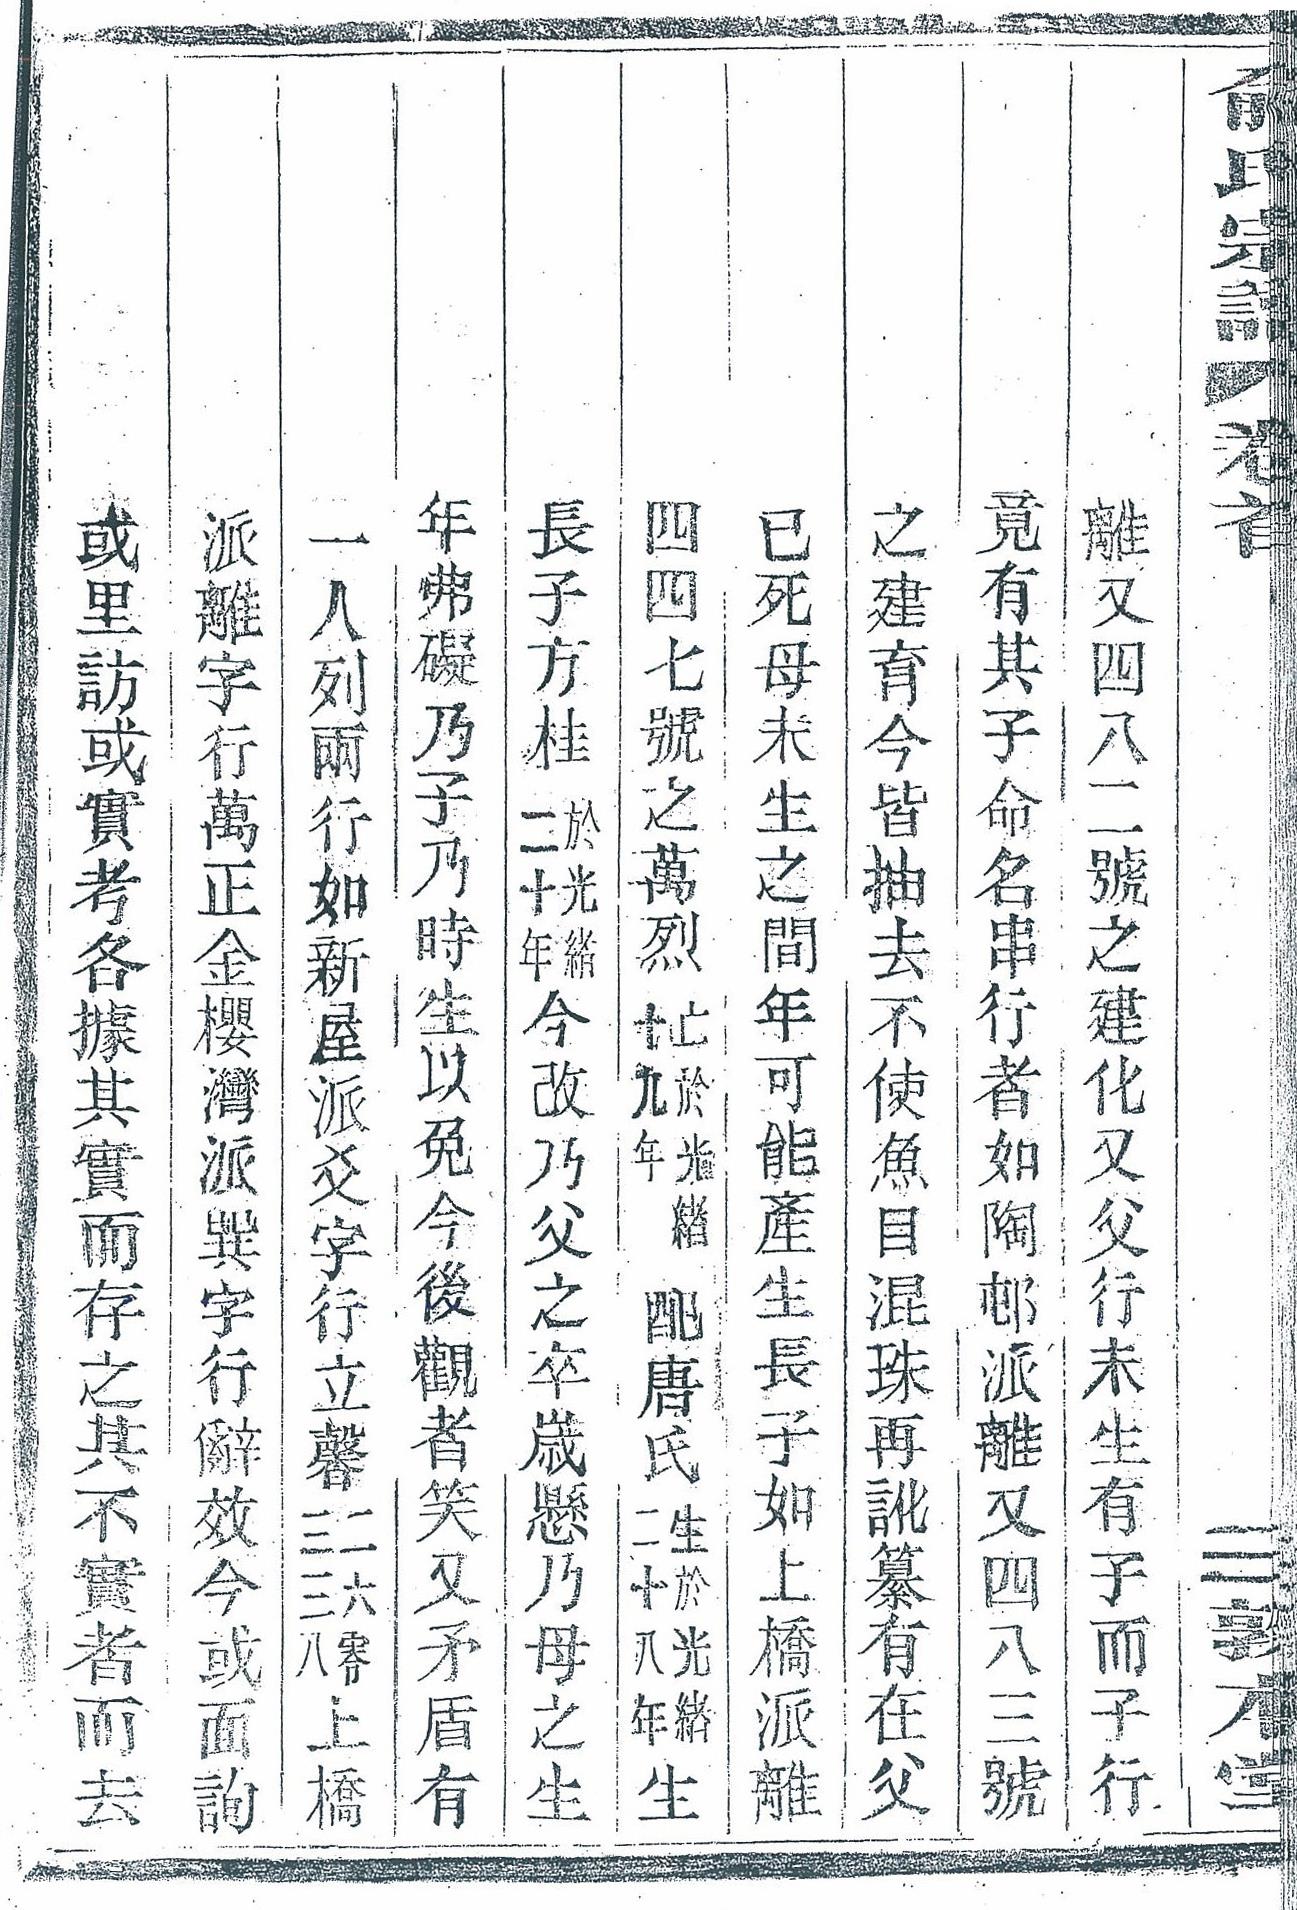 俞氏宗譜 卷首 三 敦本堂
離又四八二號之建化又父行未生有子而子行
竟有其子命名串行者如陶邨派離又四八三號
之建育今皆抽去不使魚目混珠再訛纂有在父
已死母未生之間年可能產生長子如上橋派離
四四七號之萬烈亡於光緒十九年配唐氏生於光緒二十八年生
長子方桂於光緒二十年今改乃父之卒歲懸乃母之生
年弗礙乃子乃時生以免今後觀者笑又矛盾有
一人列兩行如新屋派爻字行立馨二六零三三八上橋
派離字行萬正金櫻灣派巽字行辭效今或面詢
或里訪或實考各據其實而存之其不實者而去